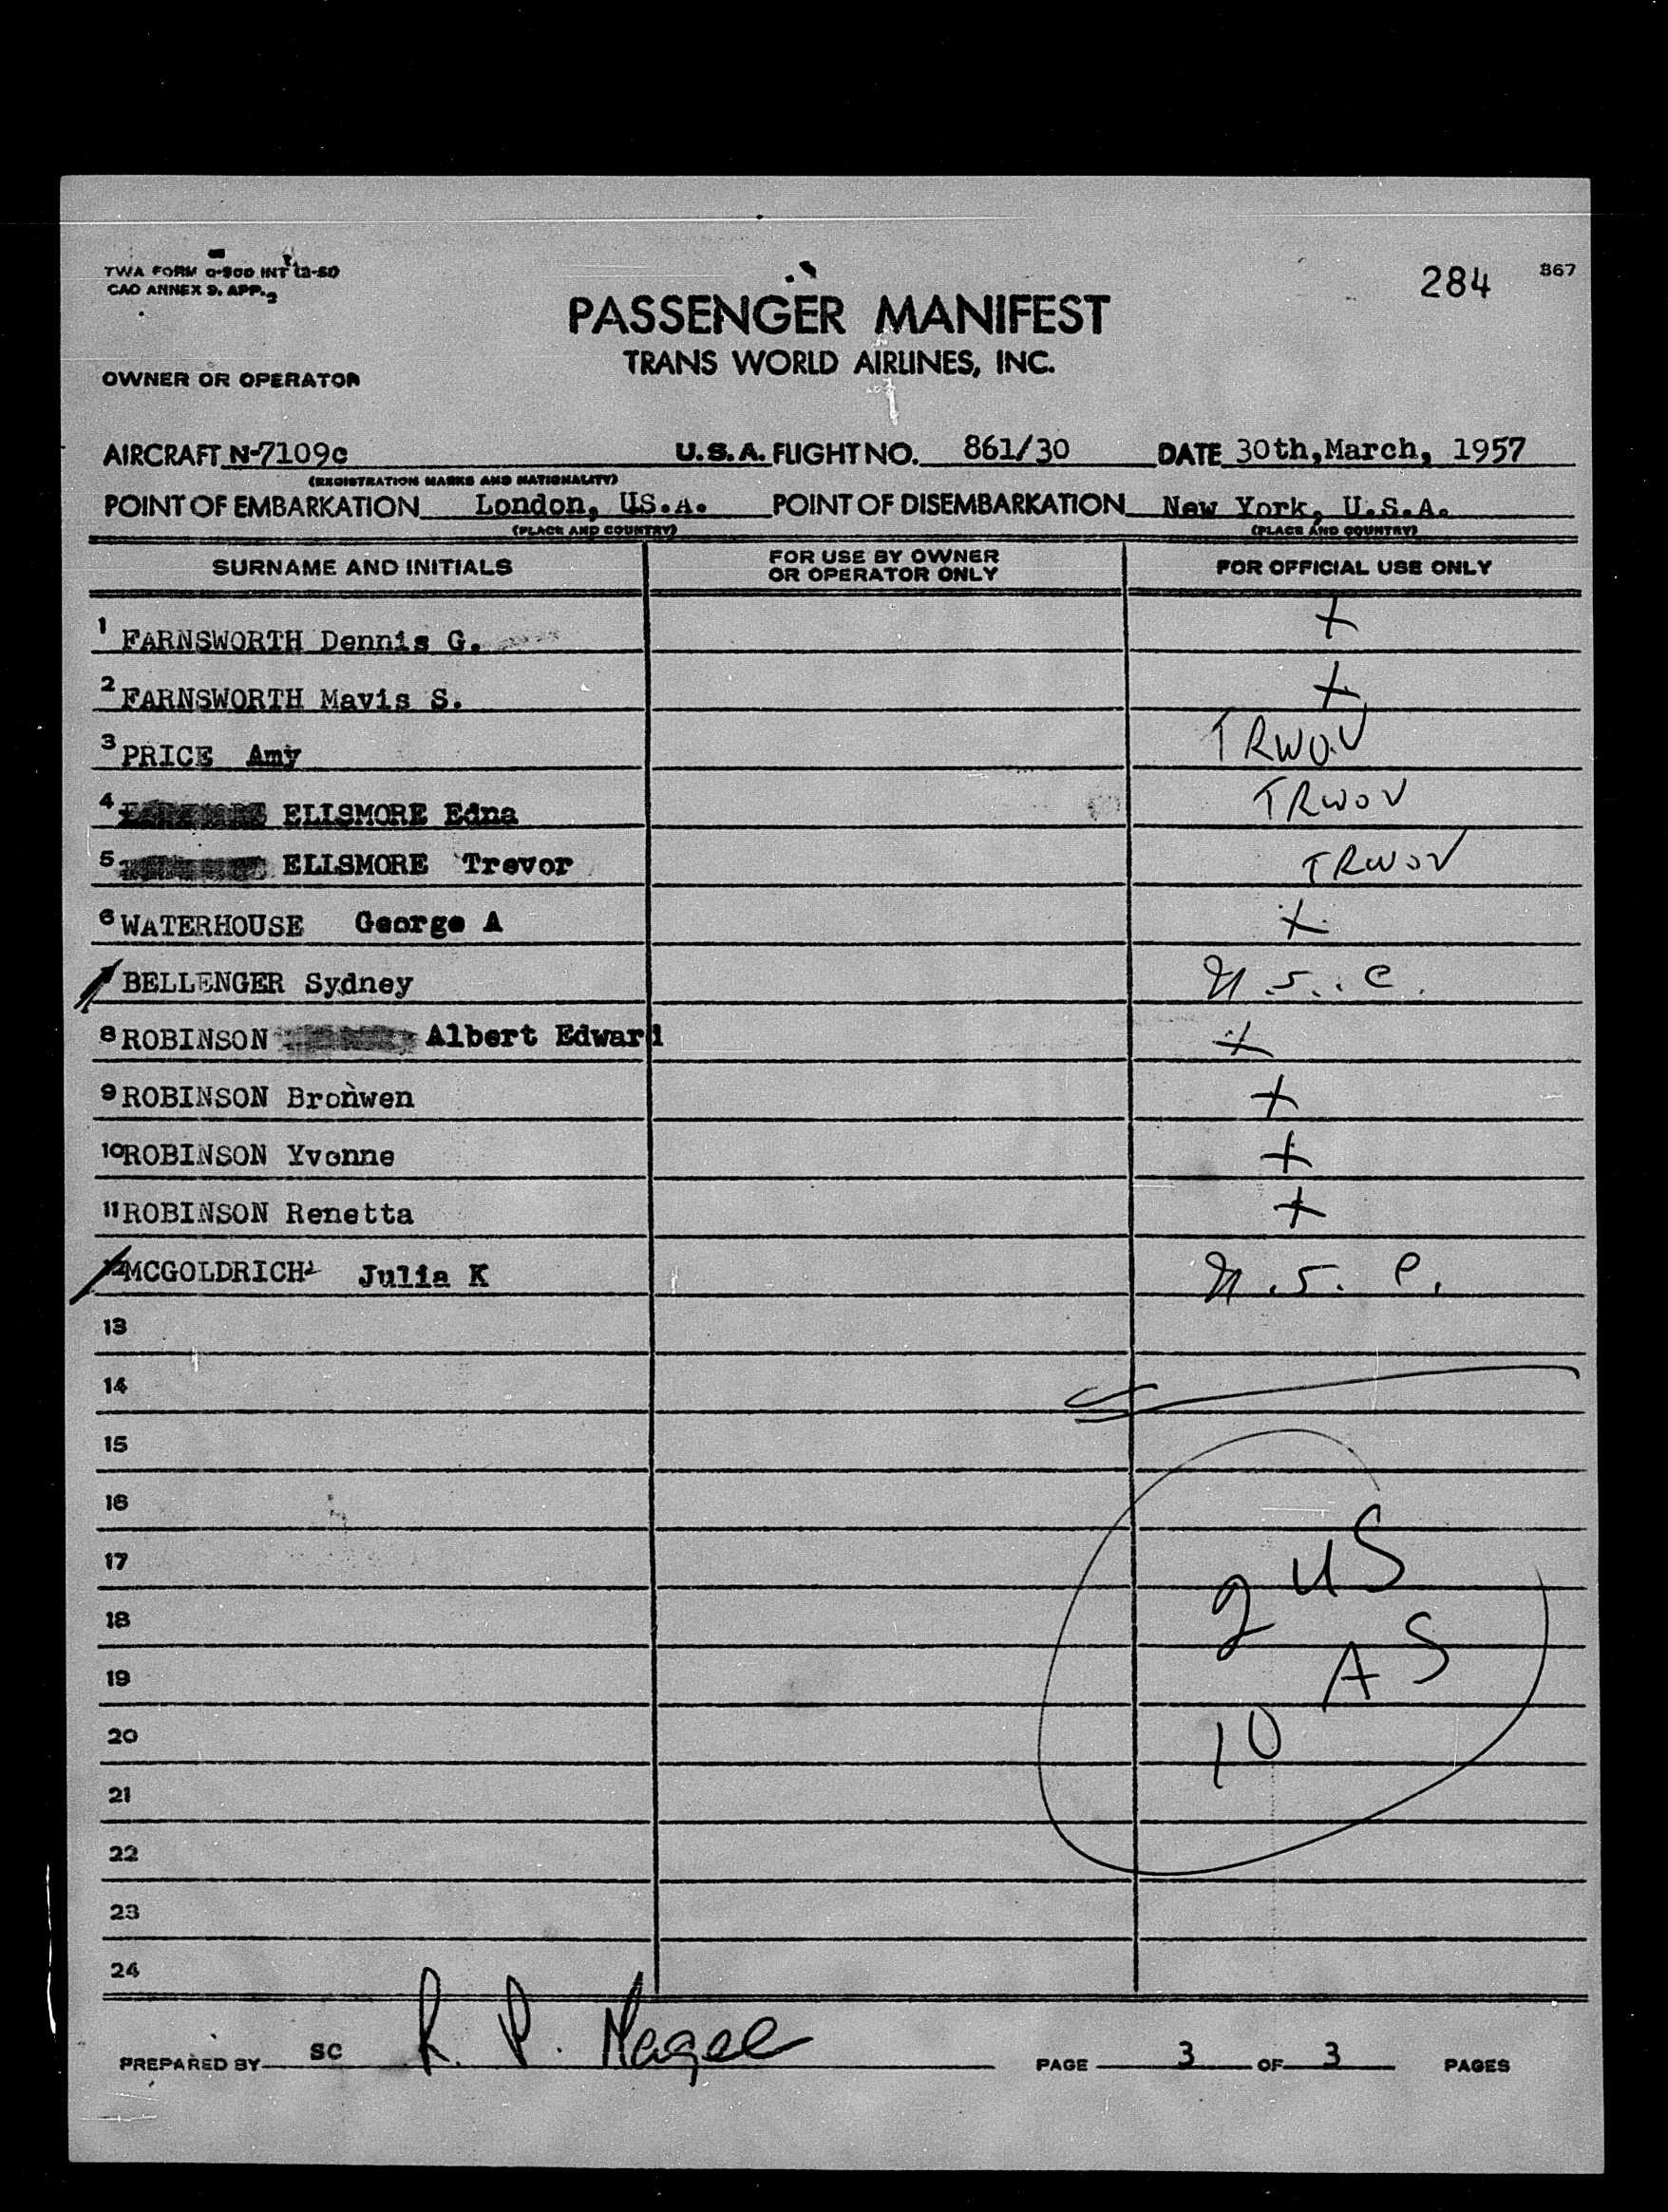 TWA FORM O-900 INT 12-50
CAO ANNEX 9. APP. 2
284 867
PASSENGER MANIFEST
TRANS WORLD AIRLINES, INC.
OWNER OR OPERATOR
AIRCRAFT N-7109c U.S.A. FLIGHT NO. 861/30 DATE 30th, March, 1957
(REGISTRATION MARKS AND NATIONALITY)
POINT OF EMBARKATION London, US.A. POINT OF DISEMBARKATION New York, U.S.A.
(PLACE AND COUNTRY) (PLACE AND COUNTRY)
SURNAME AND INITIALS FOR USE BY OWNER OR OPERATOR ONLY FOR OFFICIAL USE ONLY
1 FARNSWORTH Dennis G. +
2 FARNSWORTH Mavis S. +
3 PRICE Amy TRWOV
4 ELLSMORE Edna TRWOV
5 ELLSMORE Trevor TRWOV
6 WATERHOUSE George A +
BELLENGER Sydney
8 ROBINSON Albert Edward +
9 ROBINSON Bronwen +
10 ROBINSON Yvonne +
11 ROBINSON Renetta +
12 MCGOLDRICH Julia K
13
14
15
16
17
18
19
20
21
22
23
24
2 US
10 AS
PREPARED BY SC R. P. Magee PAGE 3 OF 3 PAGES